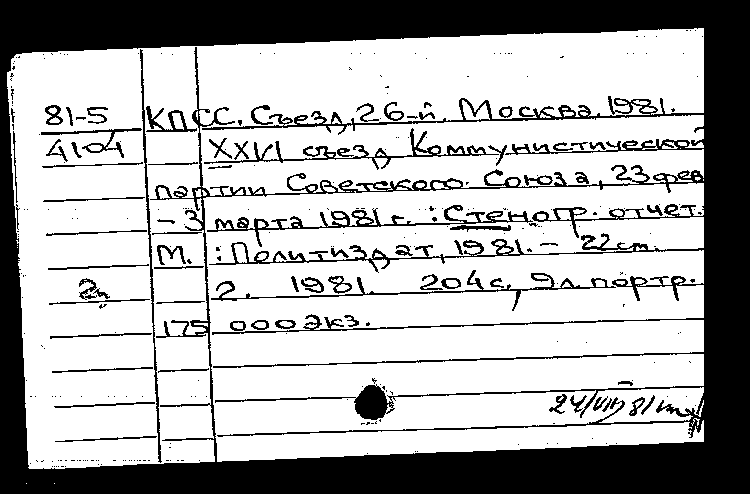 81-5 КПСС. Съезд, 26-й. Москва. 1981.
4104 XXVI съезд Коммунистической
партии Советского Союза, 23 фев
- 3 марта 1981 г. : Стеногр. отчет.
М. : Политиздат, 1981. - 22 см.
2. 2. 1981. 204 с., 9 л. портр.
175 000 экз.
24/VIII 81